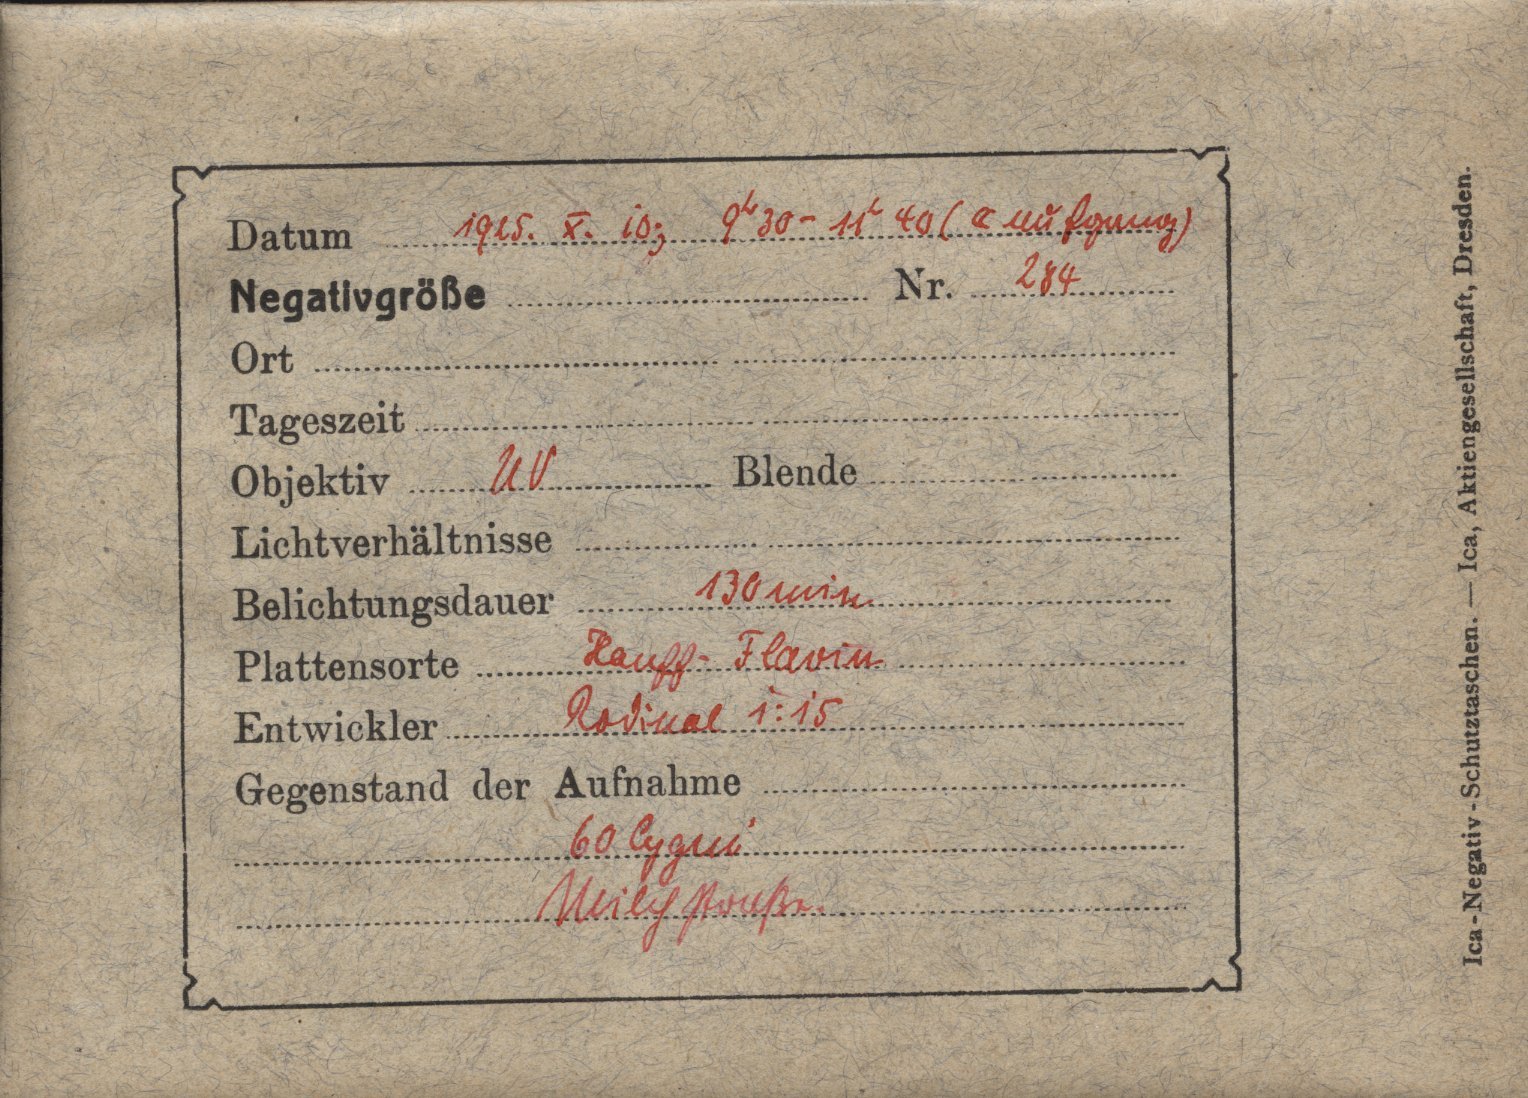 Datum 1925. X. 10; 9h 30 - 11h 40 ( ☾ Aufgang)
Negativgröße Nr. 284
Ort
Tageszeit
Objektiv UV Blende
Lichtverhältnisse
Belichtungsdauer 130 min.
Plattensorte Hauff-Flavin
Entwickler Rodinal 1:15
Gegenstand der Aufnahme
60 Cygni
Milchstraße.
Ica-Negativ-Schutztaschen. — Ica, Aktiengesellschaft, Dresden.